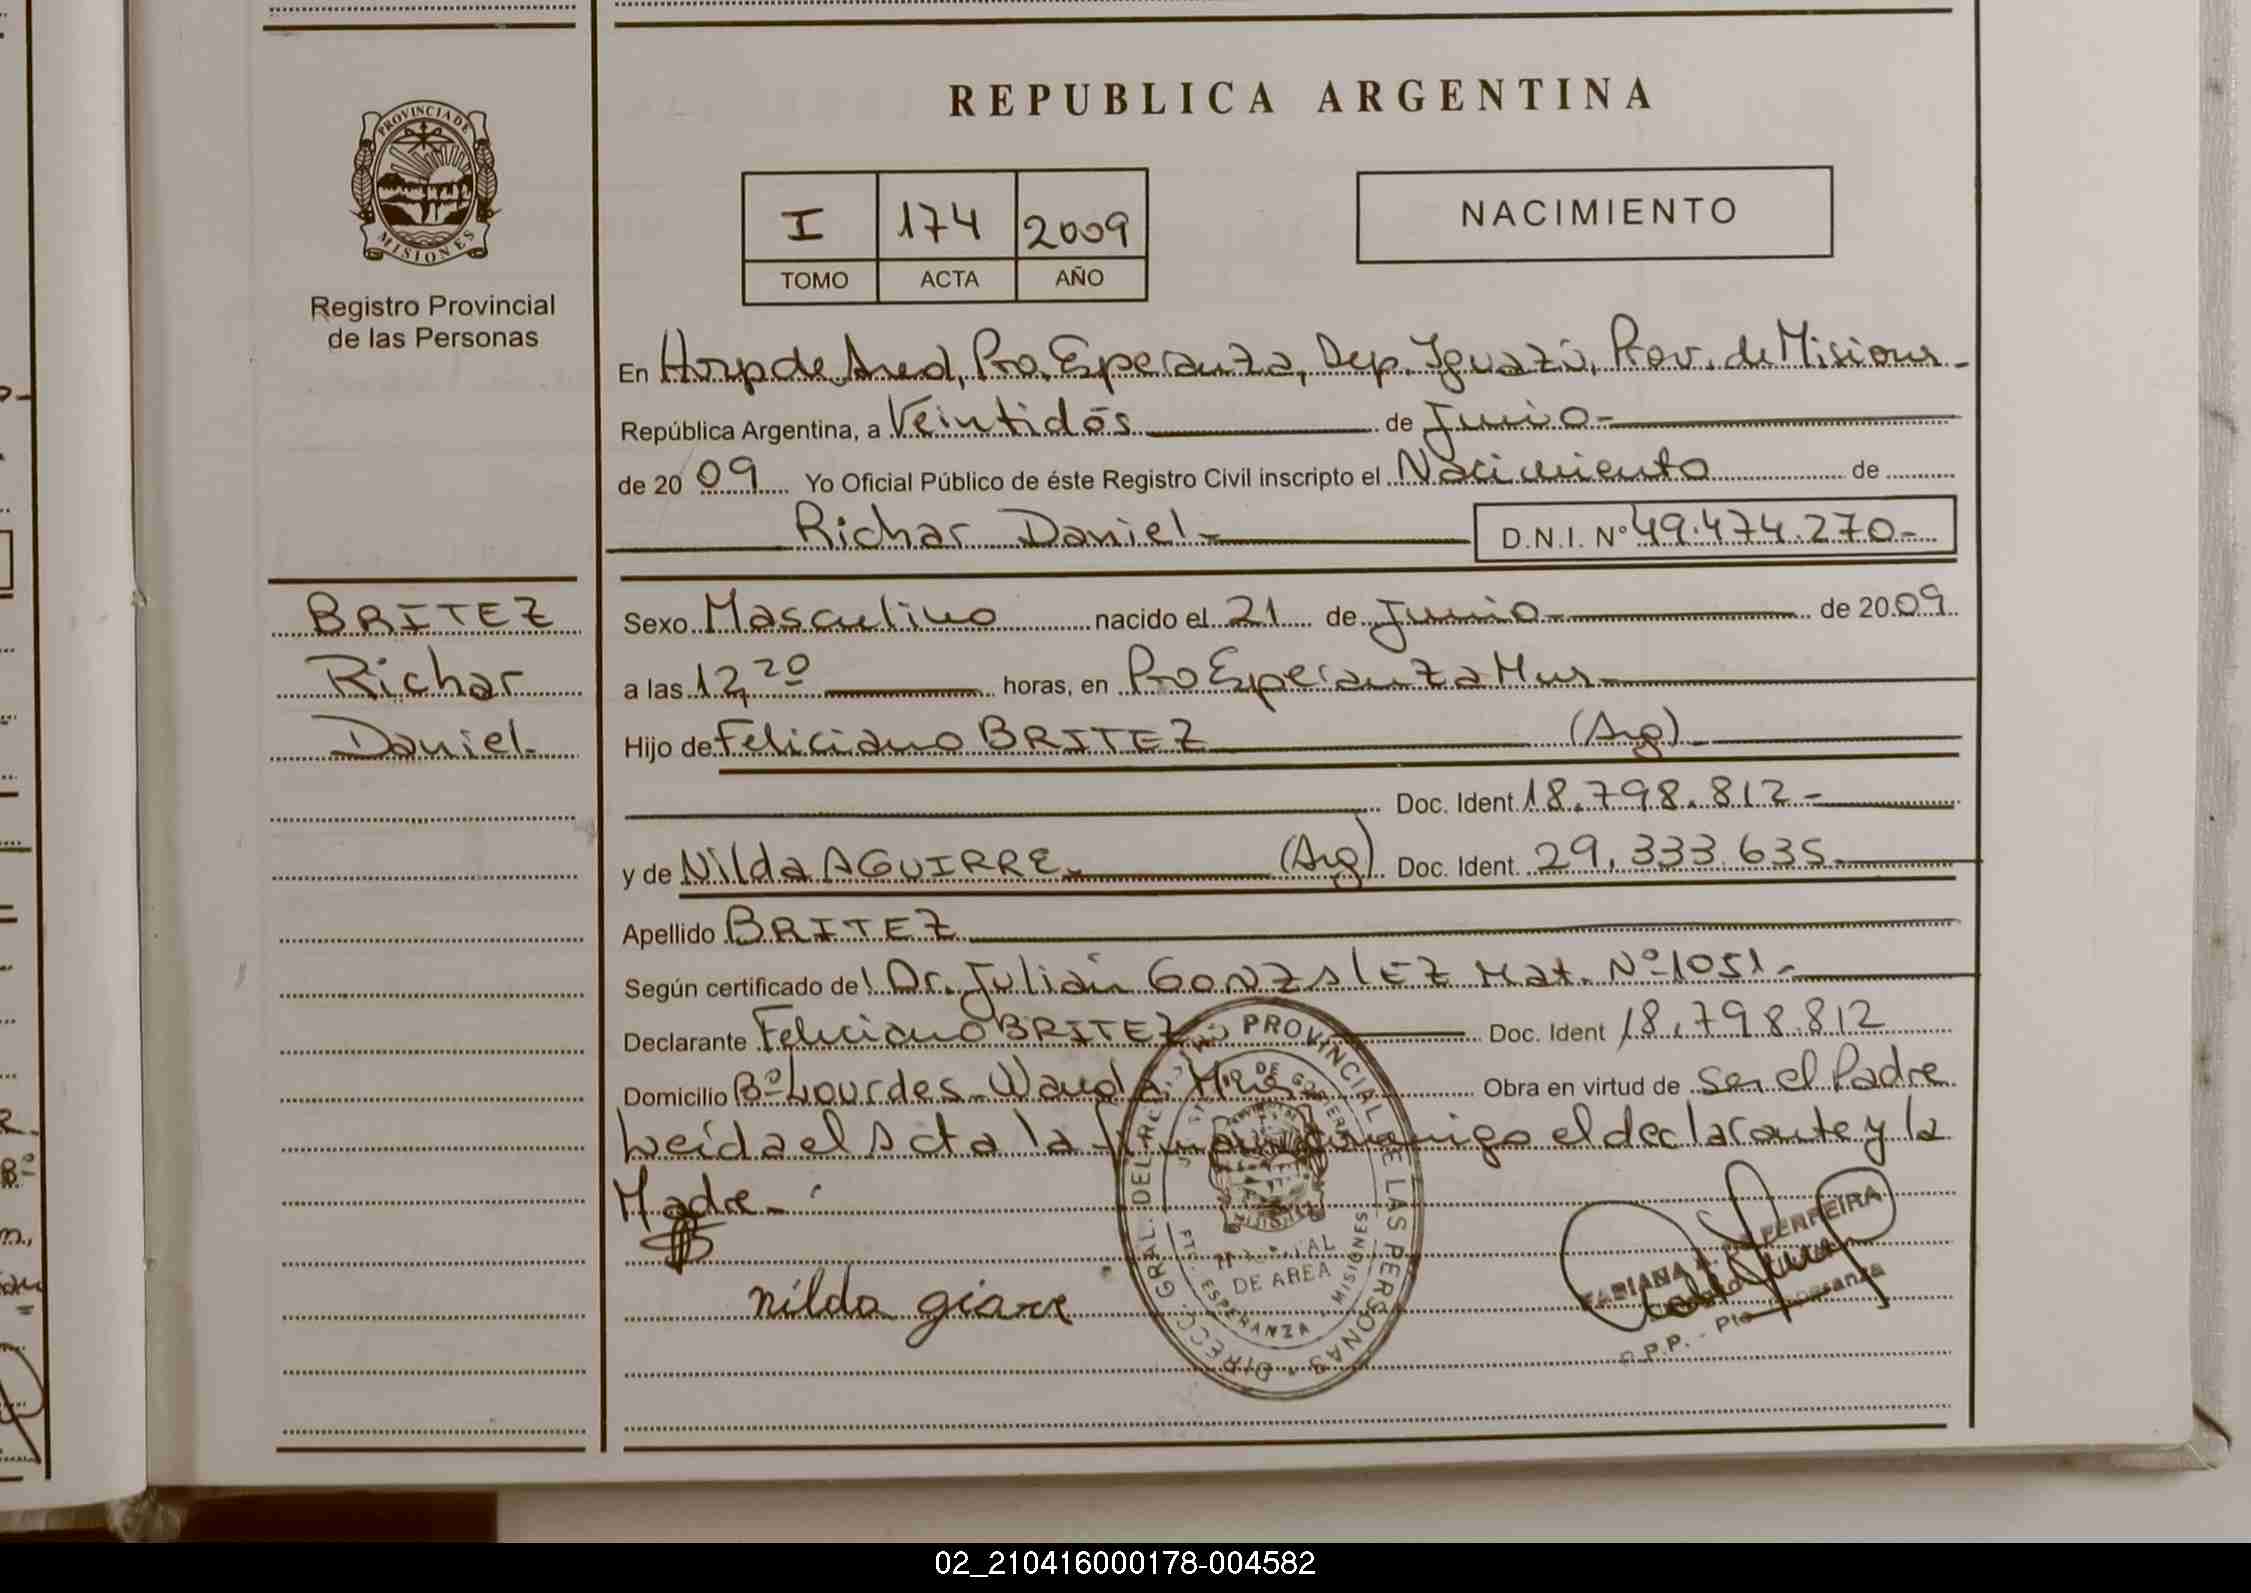 REPUBLICA ARGENTINA
PROVINCIA DE
MISIONES
Registro Provincial
de las Personas
I 174 2009
TOMO ACTA AÑO
NACIMIENTO
En Hosp de Area, Pto. Esperanza, Dep. Iguazú, Prov. de Misiones-
República Argentina, a Veintidós de Junio-
de 2009 Yo Oficial Público de éste Registro Civil inscripto el Nacimiento de
Richar Daniel- D.N.I. Nº 49.474.270-
BRITEZ
Richar
Daniel-
Sexo Masculino nacido el 21 de Junio- de 2009
a las 12,20 horas, en Pto Esperanza Mnes-
Hijo de Feliciano BRITEZ (Arg)-
Doc. Ident. 18.798.812-
y de Nilda AGUIRRE- (Arg) Doc. Ident. 29.333.635-
Apellido BRITEZ
Según certificado de Dr. Julián GONZALEZ Mat. Nº 1051-
Declarante Feliciano BRITEZ Doc. Ident 18.798.812
Domicilio Bº Lourdes- Wanda, Mnes Obra en virtud de ser el Padre
Leída el Acta la firman conmigo el declarante y la
Madre-
nilda
DIRECC. GRAL. DEL REGISTRO PROVINCIAL DE LAS PERSONAS
DE GOBIERNO
DE AREA
ESPERANZA - MISIONES
FABIANA FERREIRA
R.P.P. - Pto Esperanza
02_210416000178-004582